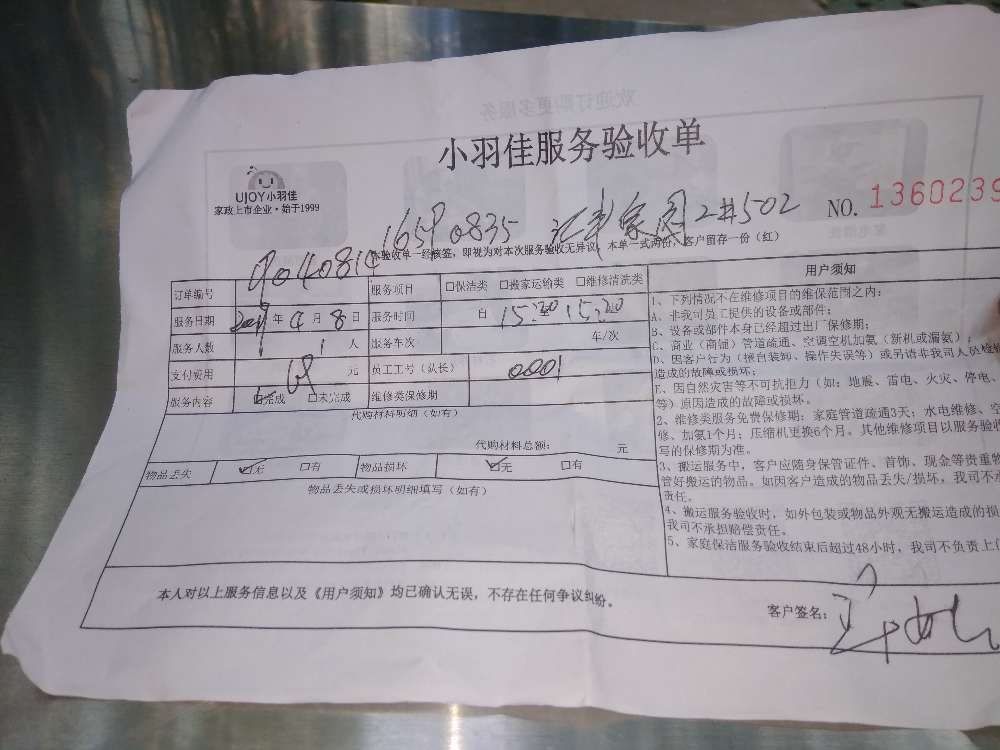 欢迎订购更多服务
小羽佳服务验收单
UJOY小羽佳
家政上市企业·始于1999
NO. 1360239
9040814 1659 0835 家园2#502
本验收单一经核签，即视为对本次服务验收无异议，本单一式两份，客户留存一份（红）
订单编号 服务项目 □保洁类 □搬家运输类 □维修清洗类
服务日期 年 4月8日 服务时间 自 15:20
服务人数 1人 服务车次 车/次
支付费用 68 元 员工工号（队长） 0001
服务内容 ☑完成 □未完成 维修类保修期
代购材料明细（如有）
代购材料总额： 元
物品丢失 ☑无 □有 物品损坏 ☑无 □有
物品丢失或损坏明细填写（如有）
用户须知
1、下列情况不在维修项目的维保范围之内：
A、非我司员工提供的设备或部件；
B、设备或部件本身已经超过出厂保修期；
C、商业（商铺）管道疏通、空调空机加氨（新机或漏氨）；
D、因客户行为（擅自装卸、操作失误等）或另请非我司人员检修
造成的故障或损坏；
E、因自然灾害等不可抗拒力（如：地震、雷电、火灾、停电、
等）原因造成的故障或损坏。
2、维修类服务免费保修期：家庭管道疏通3天；水电维修、空
修、加氨1个月；压缩机更换6个月。其他维修项目以服务验收
写的保修期为准。
3、搬运服务中，客户应随身保管证件、首饰、现金等贵重物
管好搬运的物品。如因客户造成的物品丢失/损坏，我司不承
责任。
4、搬运服务验收时，如外包装或物品外观无搬运造成的损
我司不承担赔偿责任。
5、家庭保洁服务验收结束后超过48小时，我司不负责上门
本人对以上服务信息以及《用户须知》均已确认无误，不存在任何争议纠纷。
客户签名：